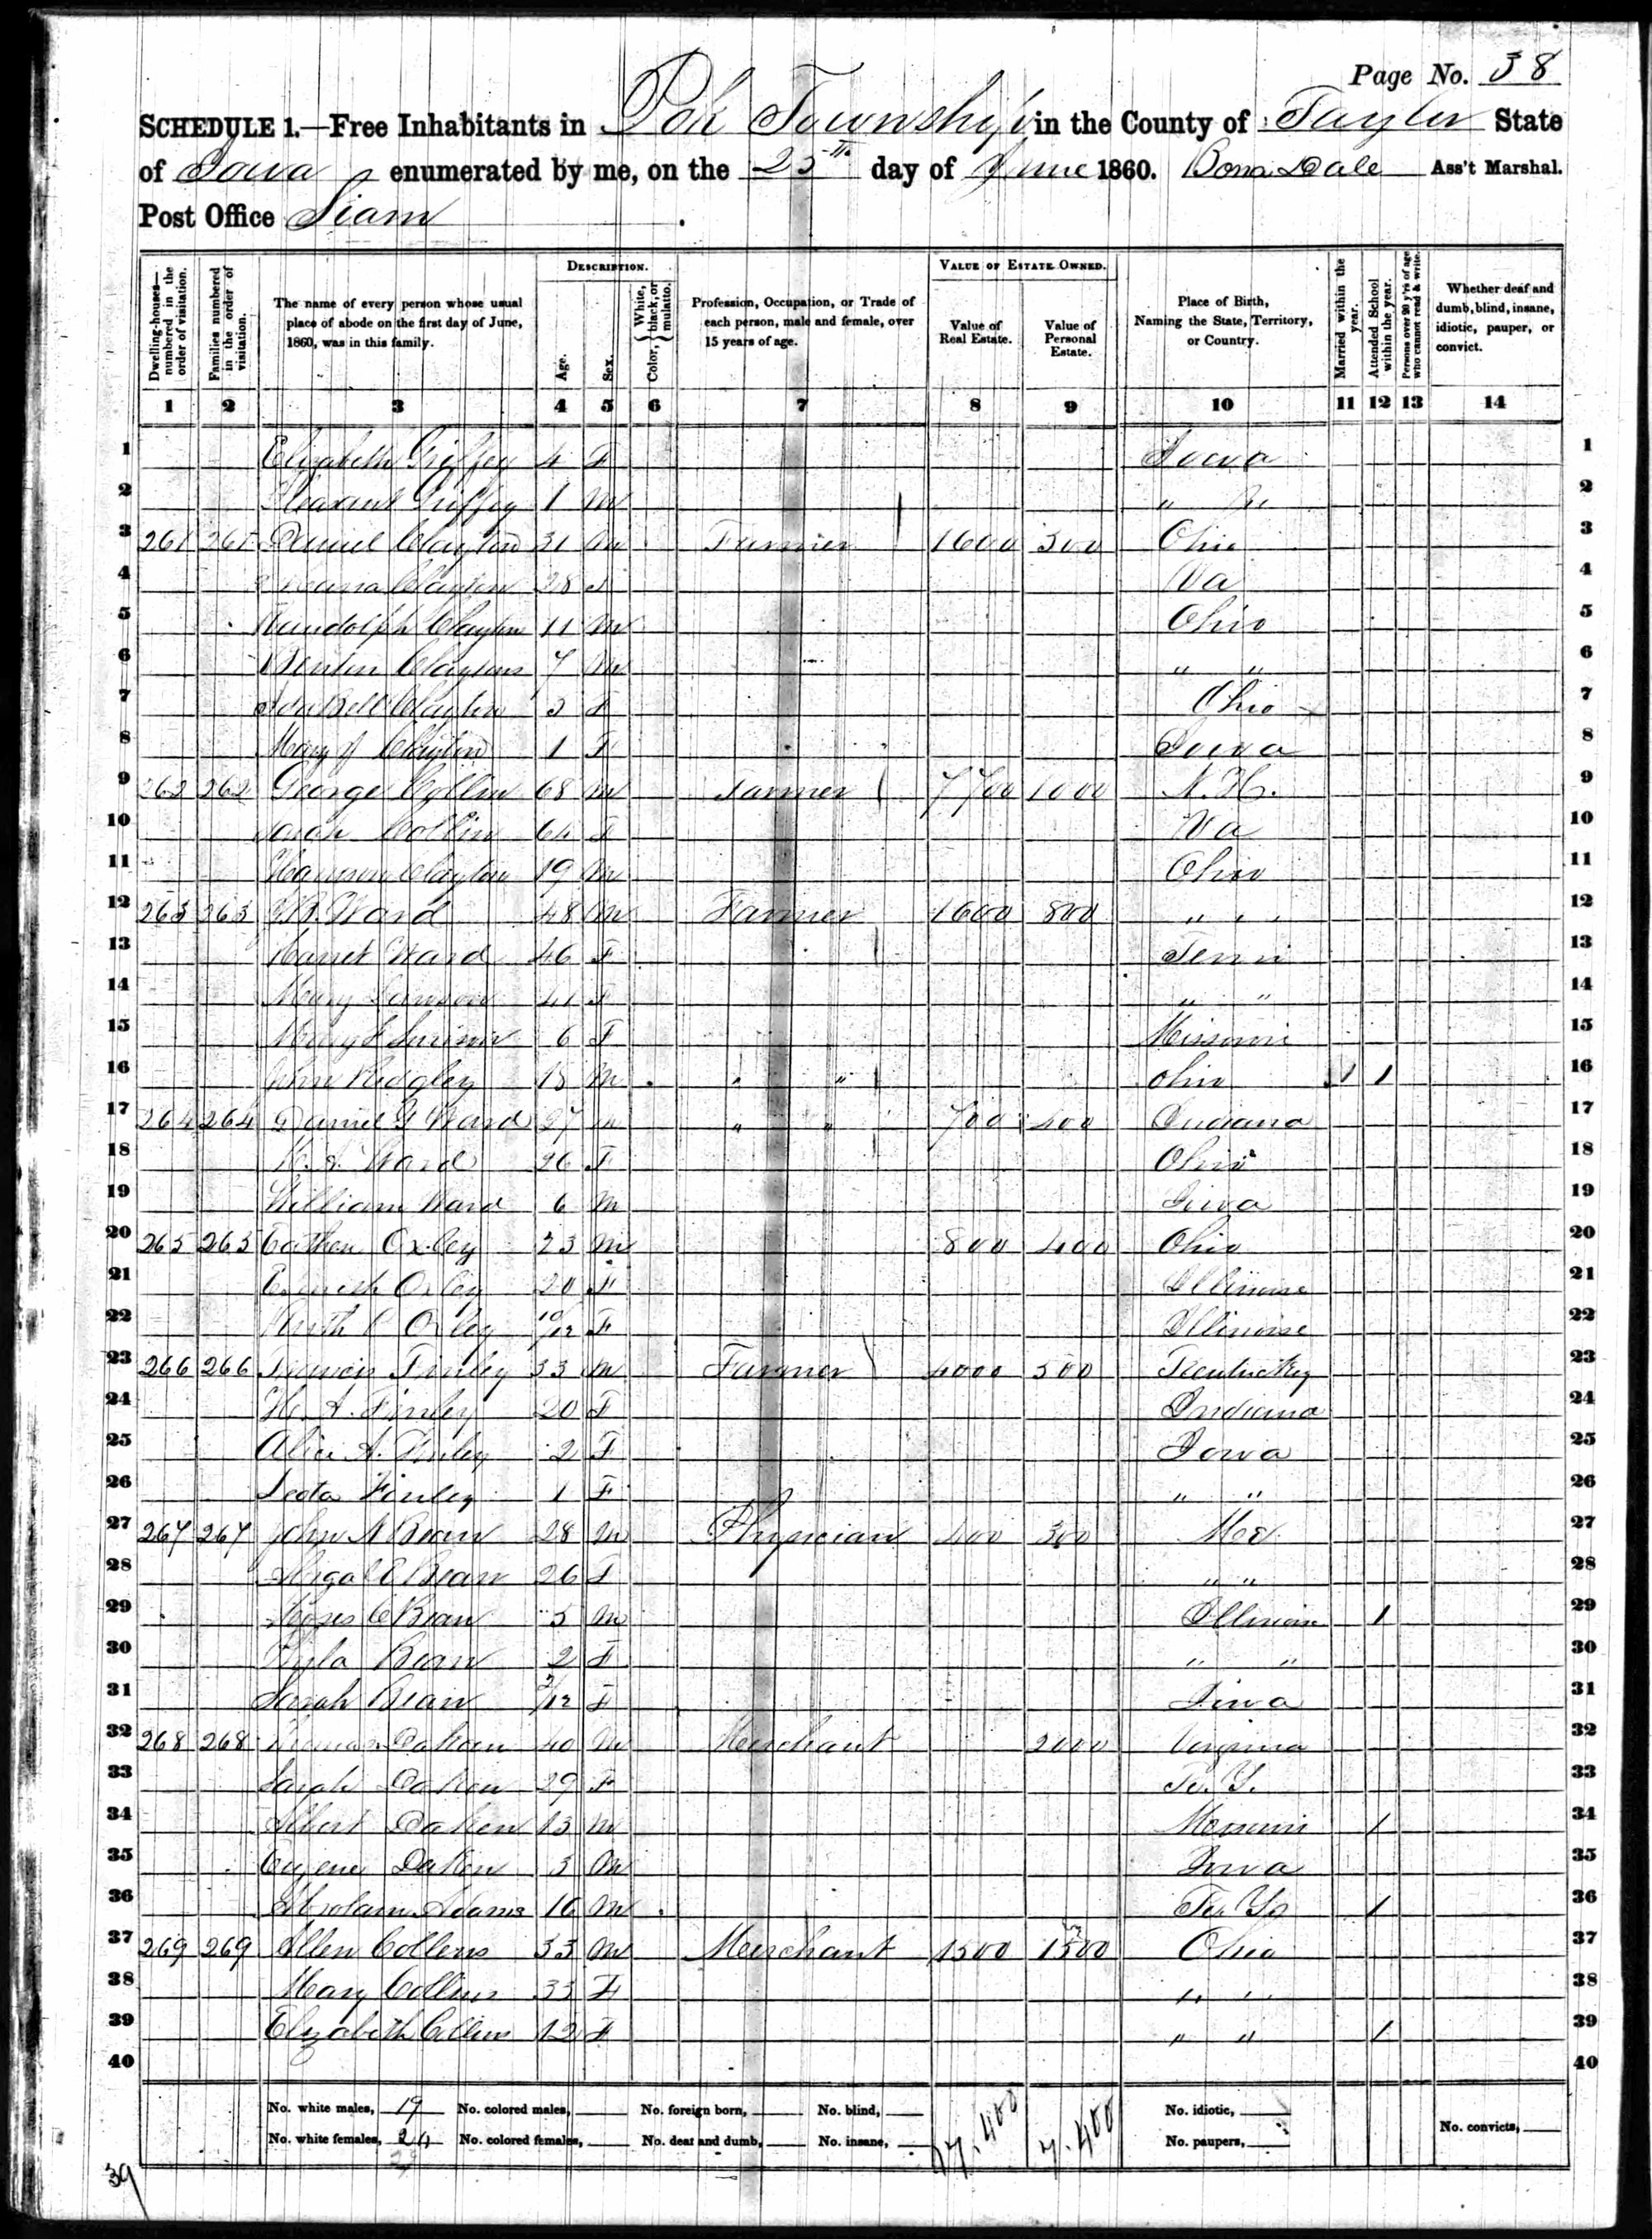 Page No. 38
SCHEDULE 1.—Free Inhabitants in Polk Township in the County of Taylor State
of Iowa enumerated by me, on the 25th day of June 1860. Ass't Marshal.
Post Office Siam
Dwelling-houses—numbered in the order of visitation.
Families numbered in the order of visitation.
The name of every person whose usual place of abode on the first day of June, 1860, was in this family.
DESCRIPTION.
Age.
Sex.
Color, White, black, or mulatto.
Profession, Occupation, or Trade of each person, male and female, over 15 years of age.
VALUE OF ESTATE OWNED.
Value of Real Estate.
Value of Personal Estate.
Place of Birth, Naming the State, Territory, or Country.
Married within the year.
Attended School within the year.
Persons over 20 y'rs of age who cannot read & write.
Whether deaf and dumb, blind, insane, idiotic, pauper, or convict.
1 2 3 4 5 6 7 8 9 10 11 12 13 14
1 Elizabeth Griffey 4 F Iowa 1
2 Griffey 1 M " 2
3 261 261 Daniel Clayton 31 M Farmer 1600 300 Ohio 3
4 Clayton 28 F Va 4
5 Randolph Clayton 11 M Ohio 5
6 Clayton 7 M " " 6
7 Clayton 3 F Ohio 7
8 Mary J Clayton 1 F Iowa 8
9 262 262 George Collin 68 M Farmer 7700 1000 9
10 Sarah Collin 64 F Va 10
11 Clayton 19 M Ohio 11
12 263 263 Ward 48 M Farmer 1600 800 " " 12
13 Harriet Ward 46 F Tenn 13
14 Mary 41 F " " 14
15 Mary 6 F Missouri 15
16 John Ridgley 15 M " " Ohio 1 1 16
17 264 264 Daniel G Ward 27 M " " 700 400 Indiana 17
18 Ward 26 F Ohio 18
19 William Ward 6 M Iowa 19
20 265 265 Oxley 23 M 800 400 Ohio 20
21 Oxley 20 F Illinoise 21
22 Ruth Oxley 10/12 F Illinoise 22
23 266 266 Francis Finley 33 M Farmer 4000 500 Kentuckey 23
24 H. A. Finley 20 F Indiana 24
25 Alice A. Finley 2 F Iowa 25
26 Leota Finley 1 F " " 26
27 267 267 John N Bean 28 M Physician 400 300 27
28 Abigal E Bean 26 F " " 28
29 Bean 5 M Illinois 1 29
30 Bean 2 F " " 30
31 Sarah Bean /12 F Iowa 31
32 268 268 Daken 40 M Merchant 2000 Virginia 32
33 Sarah Daken 29 F 33
34 Albert Daken 13 M Missouri 1 34
35 Eugene Daken 3 M Iowa 35
36 Abraham Adams 16 M 1 36
37 269 269 Allen Collens 33 M Merchant 1500 1500 Ohio 37
38 Mary Collins 33 F " " 38
39 Elizabeth Collins 12 F " " 1 39
40 40
No. white males, 19 No. colored males, No. foreign born, No. blind, 17.400 7.400 No. idiotic,
No. white females, No. colored females, No. deaf and dumb, No. insane, No. paupers, No. convicts,
39